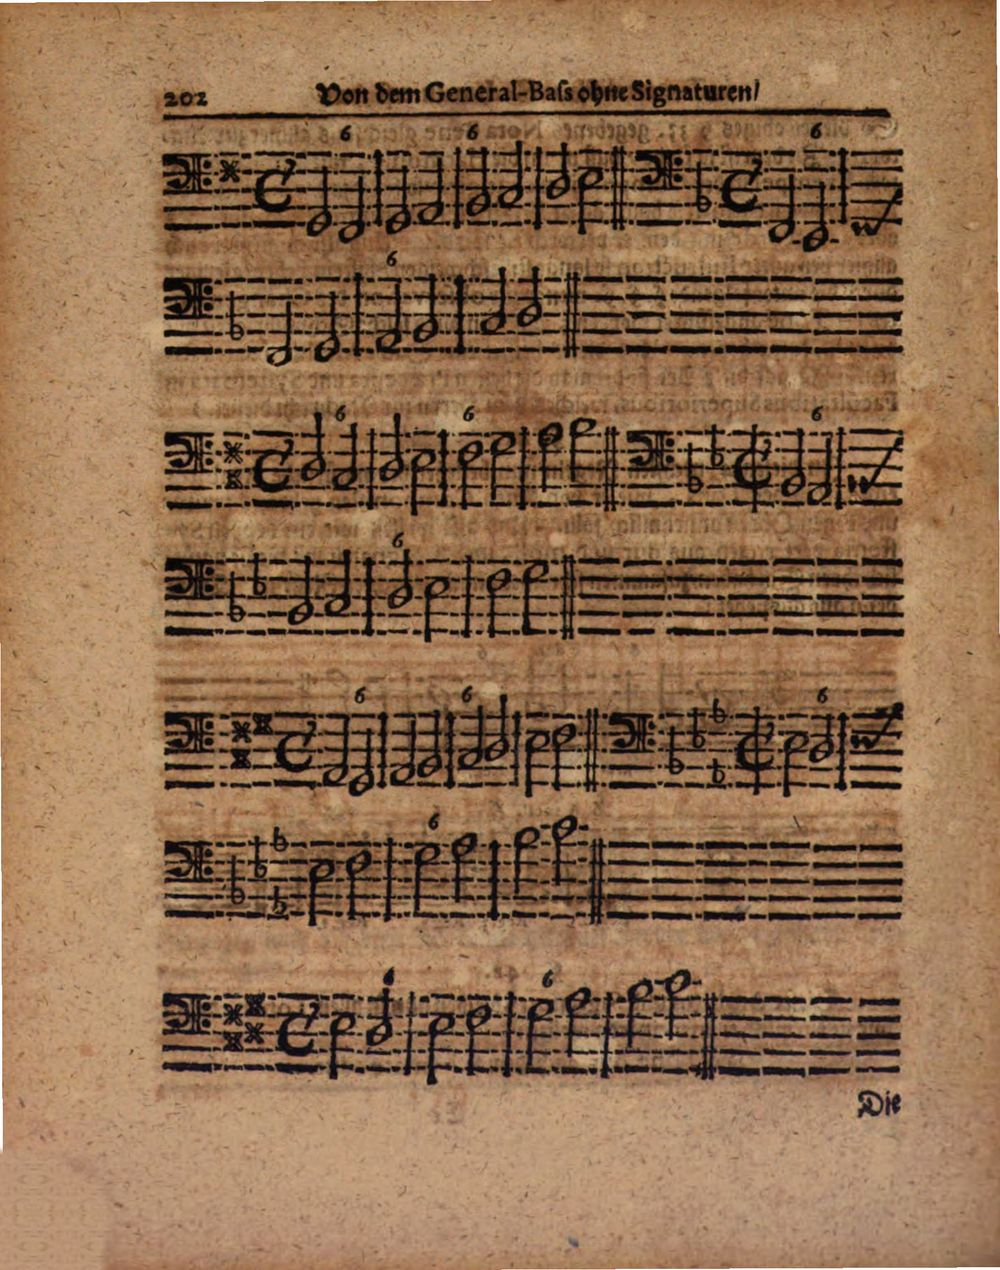 202 Von dem General-Bass ohne Signaturen/
6 6 6
6
6 6 6
6
6 6 6
6
6 6
Die